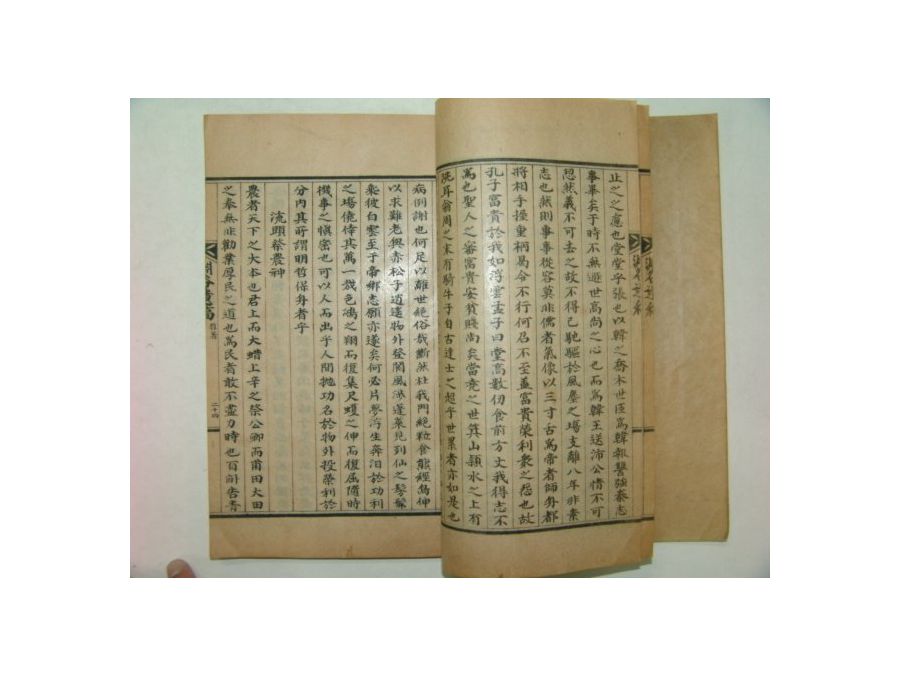 止之之慮也堂堂乎張也以韓之喬木世臣爲韓報讐強秦志
事畢矣于時不無遯世高尚之心也而爲韓王送沛公情不可
恝然義不可去之故不得已馳驅於風塵之場支離八年非素
志也然則事事從容莫非儒者氣像以三寸舌爲帝者師身都
將相手操重柄曷令不行何召不至盖富貴榮利衆之慾也故
孔子富貴於我如浮雲孟子曰堂高數仞食前方丈我得志不
爲也聖人之審富貴安貧賤尚矣當堯之世箕山潁水之上有
洗耳翁周之末有騎牛子自古達士之超乎世累者亦如是也
病例謝也何足以離世絕俗哉斷然杜我門絕粒食熊經鳥伸
以求難老與赤松子逍遙物外登閬風涉蓬萊見到仙之髣髴
乘彼白雲至于帝鄉志願亦遂矣何必片夢浮生奔汨於功利
之場僥倖其萬一哉色鴻之翔而復集尺蠖之伸而復屈隨時
機事之愼密也可以人而出乎人間抛功名於物外投榮利於
分內其所謂明哲保身者乎
流頭祭農神
農者天下之大本也君上而大蜡上辛之祭公卿而甫田大田
之奉無非勸業厚民之道也爲民者敢不盡力時也百[?]告[?]
雜著
二十四